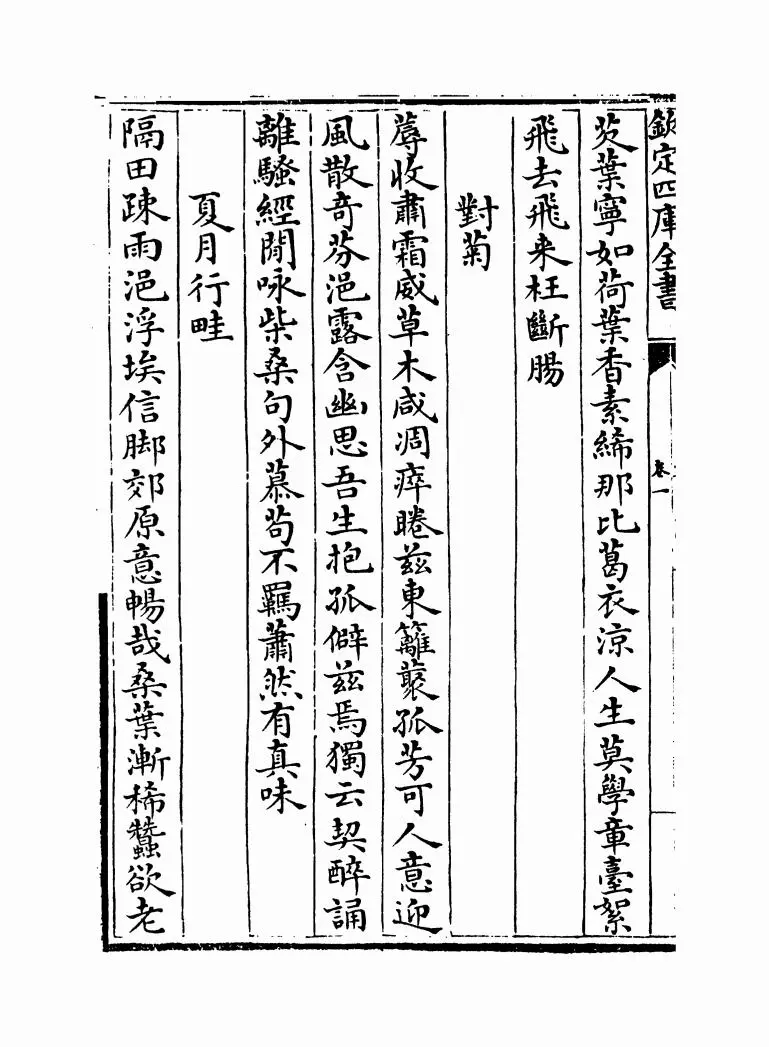 欽定四庫全書
卷一
芡葉寧如荷葉香素絺那比葛衣涼人生莫學章臺絮
飛去飛来枉斷腸
對菊
蓐收肅霜威草木咸凋瘁睠兹東籬蘂孤芳可人意迎
風散奇芬浥露含幽思吾生抱孤僻兹焉獨云契醉誦
離騷經閒咏柴桑句外慕茍不羈蕭然有真味
夏月行畦
隔田疎雨浥浮埃信脚郊原意暢哉桑葉漸稀蠶欲老